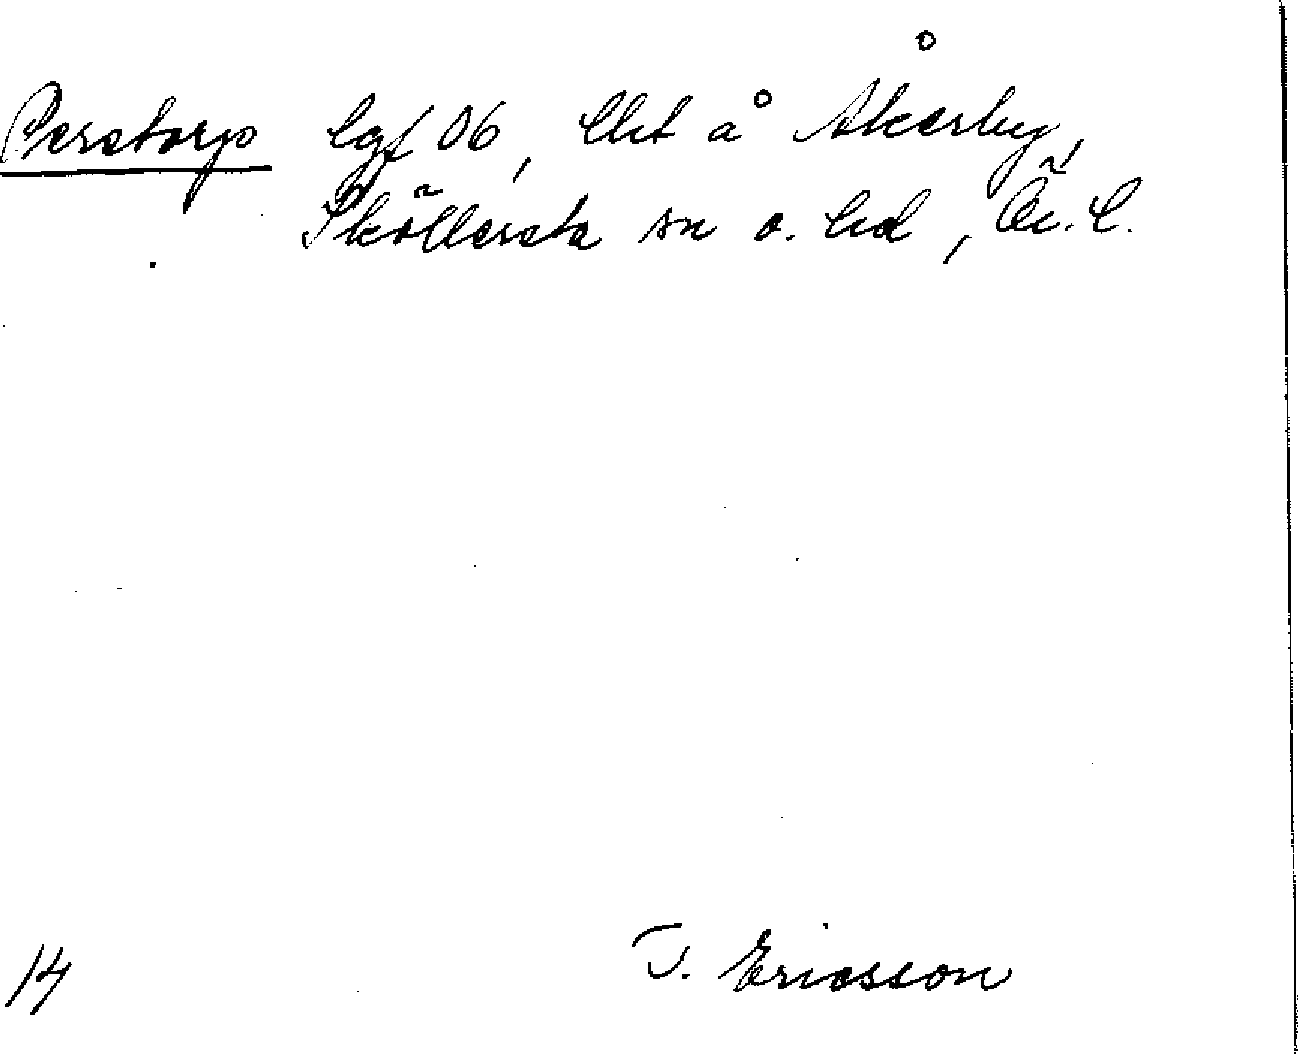 Perstorp lgf 06, lht å Åkerby,
Sköllersta sn o. hd, Ör. l.
T. Ericsson
14